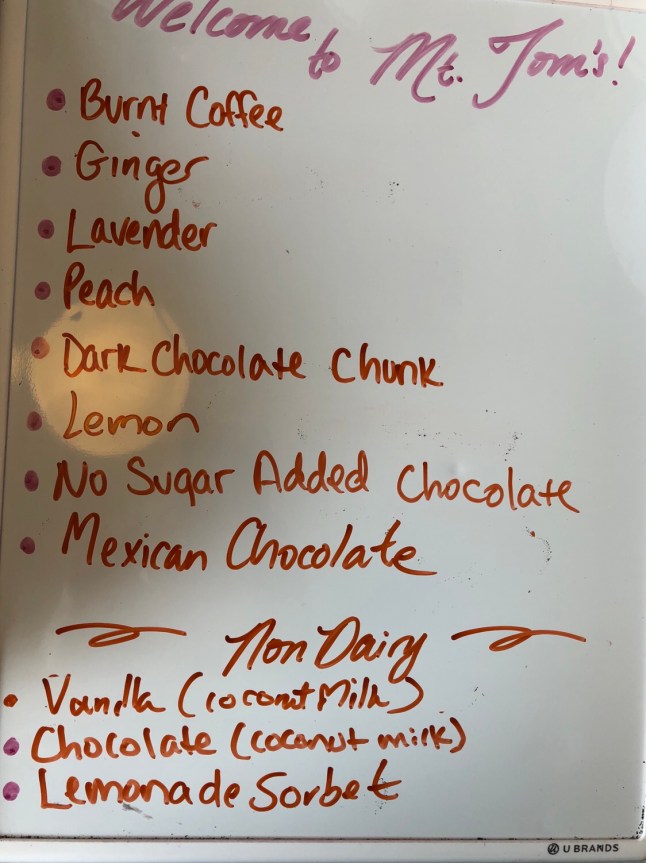 Welcome to Mt. Tom's!
Burnt Coffee
Ginger
Lavender
Peach
Dark Chocolate Chunk
Lemon
No Sugar Added Chocolate
Mexican Chocolate
Non Dairy
Vanilla (coconut Milk)
Chocolate (coconut milk)
Lemonade Sorbet
U BRANDS